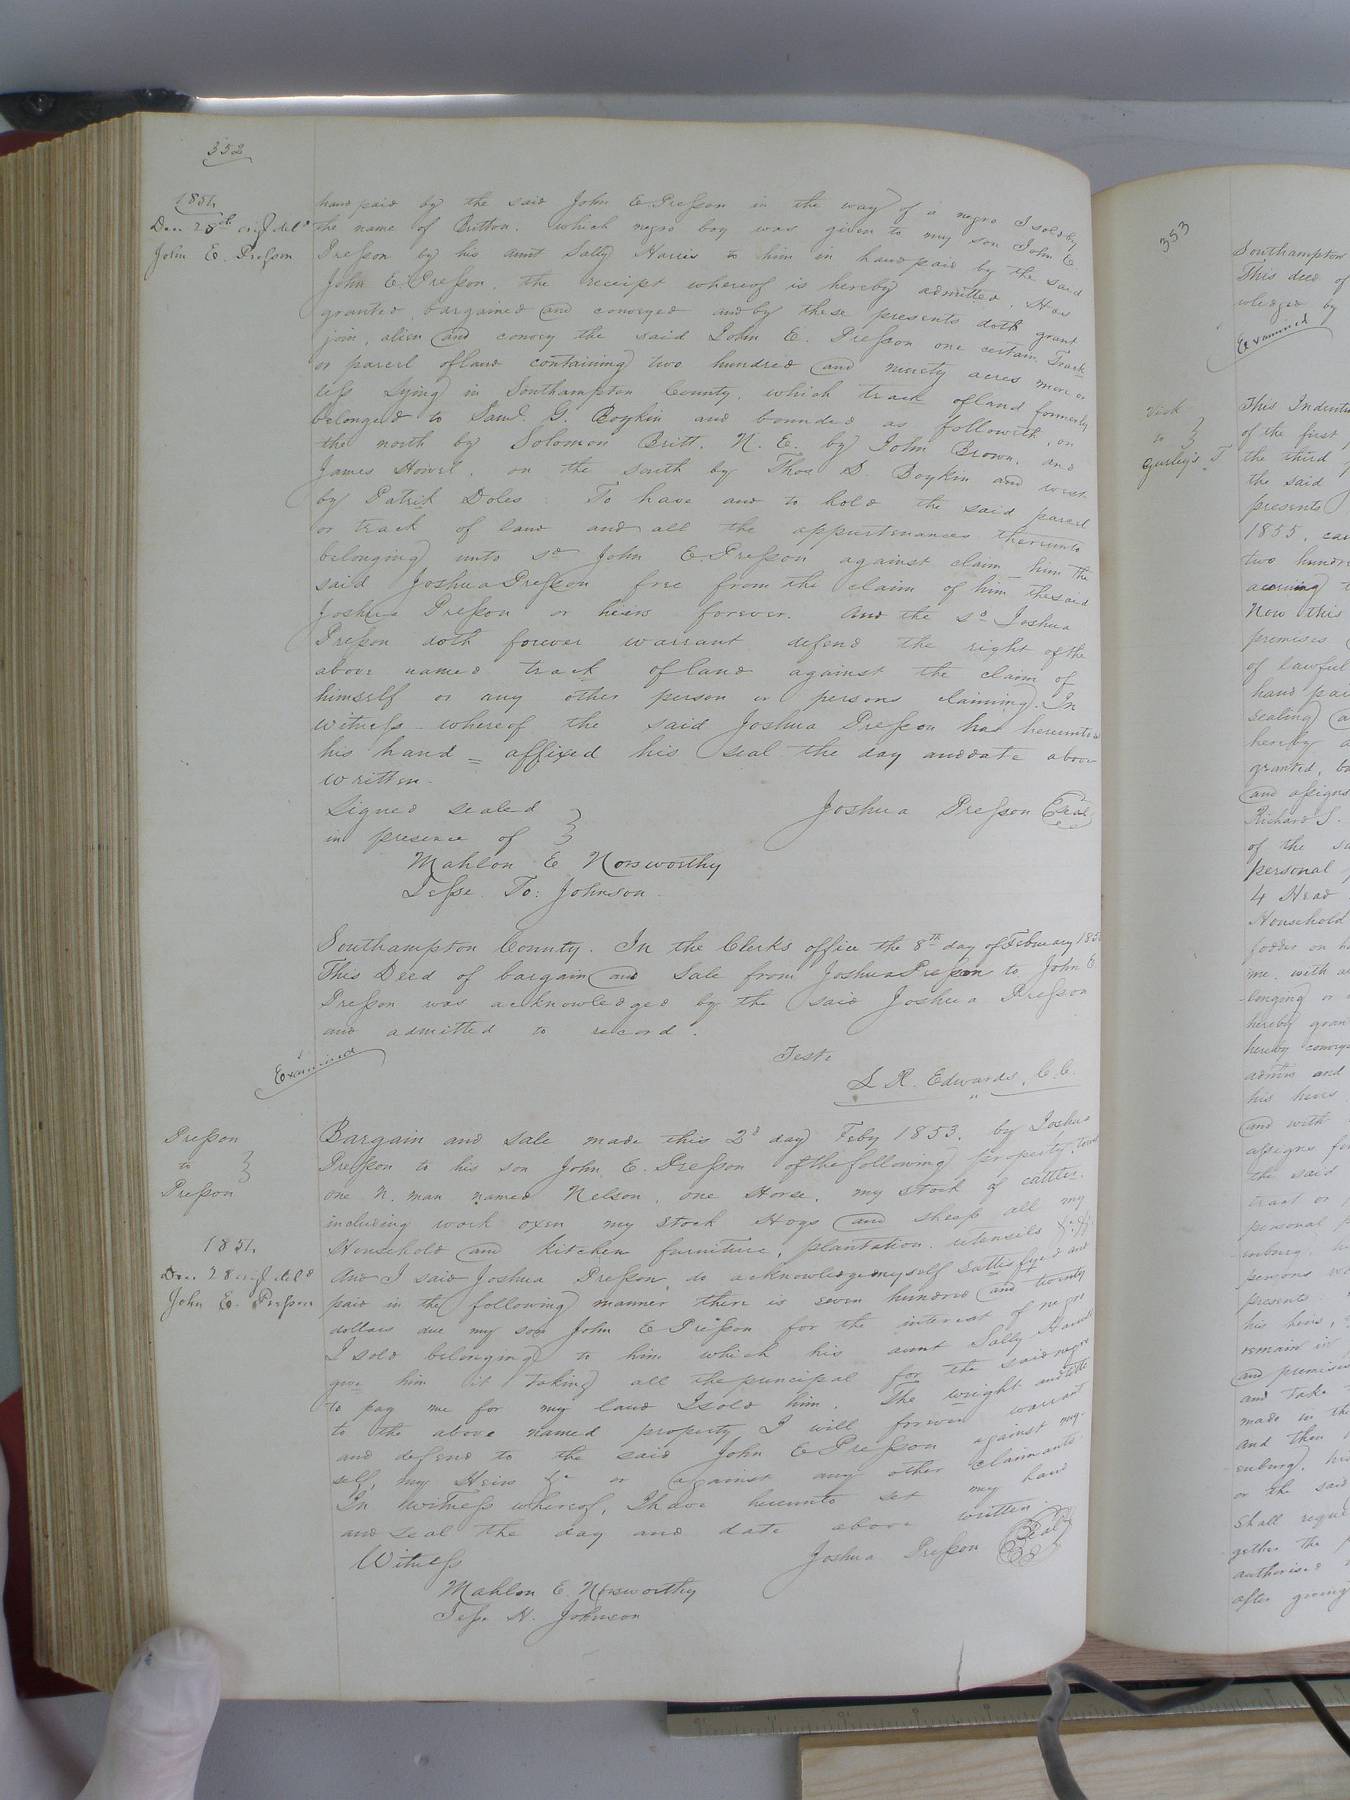 352
1854
Dec. 28th orig del'd
John E. Presson
hand paid by the said John E Presson in the way of a negro I sold by
the name of Britton. which negro boy was given to my son John E
Presson by his aunt Sally Harris to him in hand paid by the said
John E Presson, the receipt whereof is hereby admitted. Has
granted, bargained and conveyed and by these presents doth grant
join, alien and convey the said John E. Presson one certain Track
or parcel of land containing two hundred and ninety acres more or
less lying in Southampton County. which track of land formerly
belonged to Saml. G. Boykin and bounded as followith, on
the north by Solomon Britt. N. E. by John Brown, and
James Howel, on the south by Thos D. Boykin and west
by Patrik Doles. To have and to hold the said parcel
or track of land and all the appurtenances thereunto
belonging unto sd John E. Presson against claim him the
said Joshua Presson free from the claim of him the said
Joshua Presson or heirs forever. And the sd Joshua
Presson doth forever warrant defend the right of the
above named track of land against the claim of
himself or any other person or persons claiming. In
witness whereof the said Joshua Presson has hereunto
his hand = affixed his seal the day and date above
written.
Signed sealed
in presence of
Joshua Presson Seal
Mahlon E Norsworthy
Jesse To: Johnson
Southampton County. In the Clerks office the 8th day of February 185
This Deed of bargain and Sale from Joshua Presson to John E
Presson was acknowledged by the said Joshua Presson
and admitted to record.
Examined
Teste
L R. Edwards, C. C.
Presson
to
Presson
1854
Dec. 28 orig del'd
John E. Presson
Bargain and sale made this 2d day Feby 1853. by Joshua
Presson to his son John E. Presson of the following property, towit
one N. man named Nelson, one Horse, my stock of cattle.
including work oxen my stock Hogs and sheep all my
Household and kitchen furniture, plantation utensils &c &c.
And I said Joshua Presson, do acknowledge myself sattesfyed and
paid in the following manner there is seven hundred and twenty
dollars due my son John E Presson for the interest of negro
I sold belonging to him which his aunt Sally Harris
give him it taking all the principal for the said negro
to pay me for my land I sold him. The wright and title
to the above named property I will forever warrant
and defend to the said John E Presson against my-
self, my Heirs &c or against any other claimants.
In witness whereof, I have hereunto set my hand
and seal the day and date above written.
Witness
Joshua Presson Seal
Mahlon E. Norsworthy
Jesse H. Johnson
353
Southampton
This deed of
wledged by
Examined
Vick
to
Gurley's T
This Indentu
of the first
the third
the said
presents
1855, 
two hundr
accruing t
Now this
premises
of lawful
hand pai
sealing a
hereby a
granted, ba
and assigns
Richard S.
of the su
personal
4 Head
Household
fodder on h
me, with a
longing or
hereby gran
hereby conveye
admrs and
his heirs
and with
assigns for
the said
tract or
personal
enburg, h
persons wo
presents
his heirs,
remain in
and premises
and take
made in the
and then
enburg, h
or the said
shall requi
gether the p
authorised
after giving